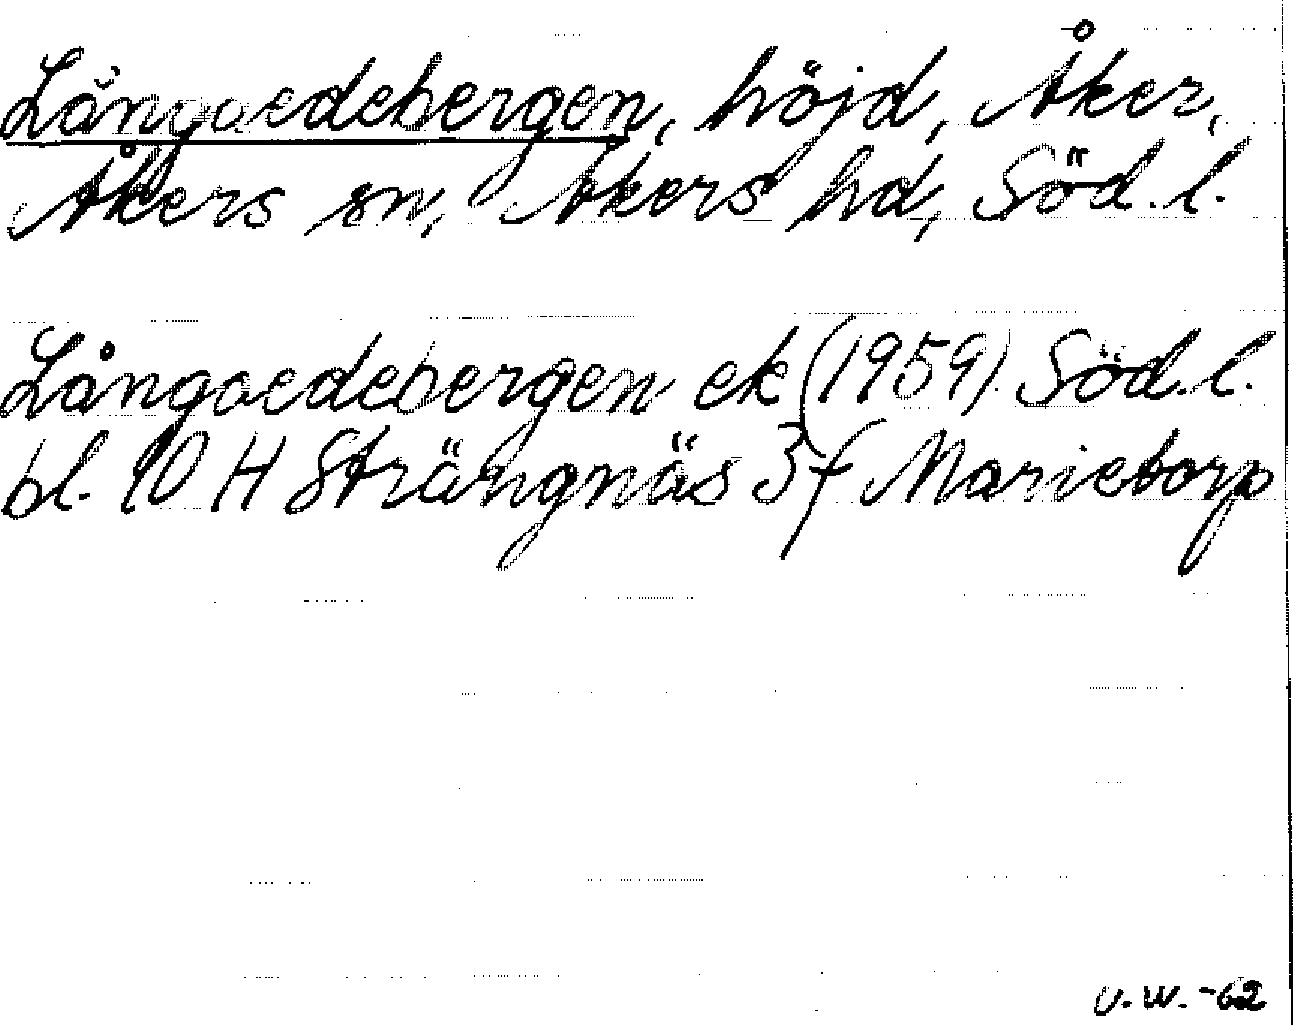 Långaedebergen, höjd, Åker,
Åkers sn, Åkers hd, Söd.l.
Långaedebergen ek (1959) Söd.l.
bl. 10 H Strängnäs 3f Marietorp
U.W. -62